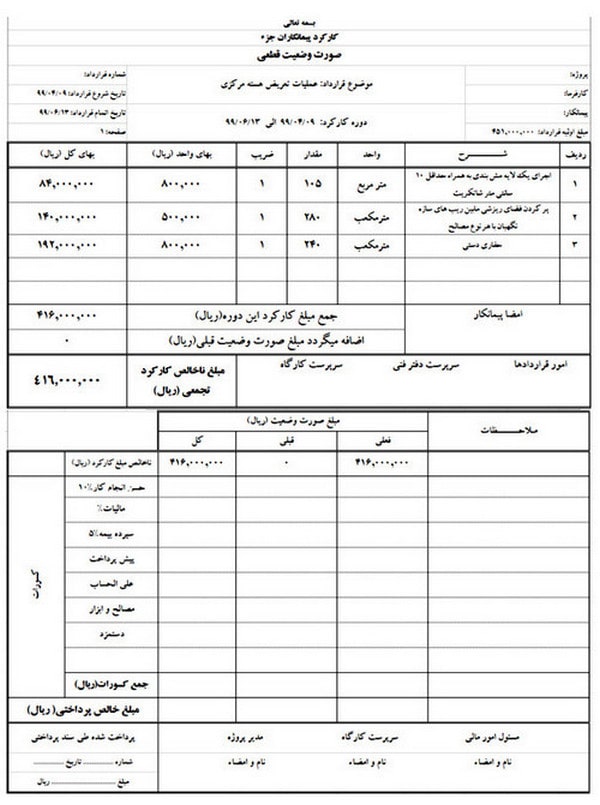 بسمه تعالی
کارکرد پیمانکاران جزء
صورت وضعیت قطعی
پروژه:
موضوع قرارداد: عملیات تعریض هسته مرکزی
شماره قرارداد:
کارفرما:
تاریخ شروع قرارداد: ۹۹/۰۴/۰۹
پیمانکار:
دوره کارکرد: ۹۹/۰۴/۰۹ الی ۹۹/۰۶/۱۳
تاریخ اتمام قرارداد: ۹۹/۰۶/۱۳
مبلغ اولیه قرارداد: ۴۵۱,۰۰۰,۰۰۰
صفحه: ۱
ردیف شـــــــرح واحد مقدار ضریب بهای واحد (ریال) بهای کل (ریال)
۱ اجرای یک لایه مش بندی به همراه حداقل ۱۰ سانتی متر شاتکریت متر مربع ۱۰۵ ۱ ۸۰۰,۰۰۰ ۸۴,۰۰۰,۰۰۰
۲ پر کردن فضای ریزشی مابین ریب های سازه نگهبان با هر نوع مصالح مترمکعب ۲۸۰ ۱ ۵۰۰,۰۰۰ ۱۴۰,۰۰۰,۰۰۰
۳ حفاری دستی مترمکعب ۲۴۰ ۱ ۸۰۰,۰۰۰ ۱۹۲,۰۰۰,۰۰۰
امضا پیمانکار
جمع مبلغ کارکرد این دوره(ریال) ۴۱۶,۰۰۰,۰۰۰
اضافه میگردد مبلغ صورت وضعیت قبلی(ریال) ۰
امور قراردادها سرپرست دفتر فنی سرپرست کارگاه
مبلغ ناخالص کارکرد تجمعی (ریال) ۴۱۶,۰۰۰,۰۰۰
ملاحـــــظات
مبلغ صورت وضعیت (ریال)
فعلی قبلی کل
۴۱۶,۰۰۰,۰۰۰ ۰ ۴۱۶,۰۰۰,۰۰۰ ناخالص مبلغ کارکرد (ریال)
کسورات
حسن انجام کار۱۰%
مالیات%
سپرده بیمه۵%
پیش پرداخت
علی الحساب
مصالح و ابزار
دستمزد
جمع کسورات(ریال)
مبلغ خالص پرداختی( ریال)
مسئول امور مالی سرپرست کارگاه مدیر پروژه پرداخت شده طی سند پرداختی
نام و امضاء نام و امضاء نام و امضاء شماره ............ تاریخ ............
مبلغ .................... ریال